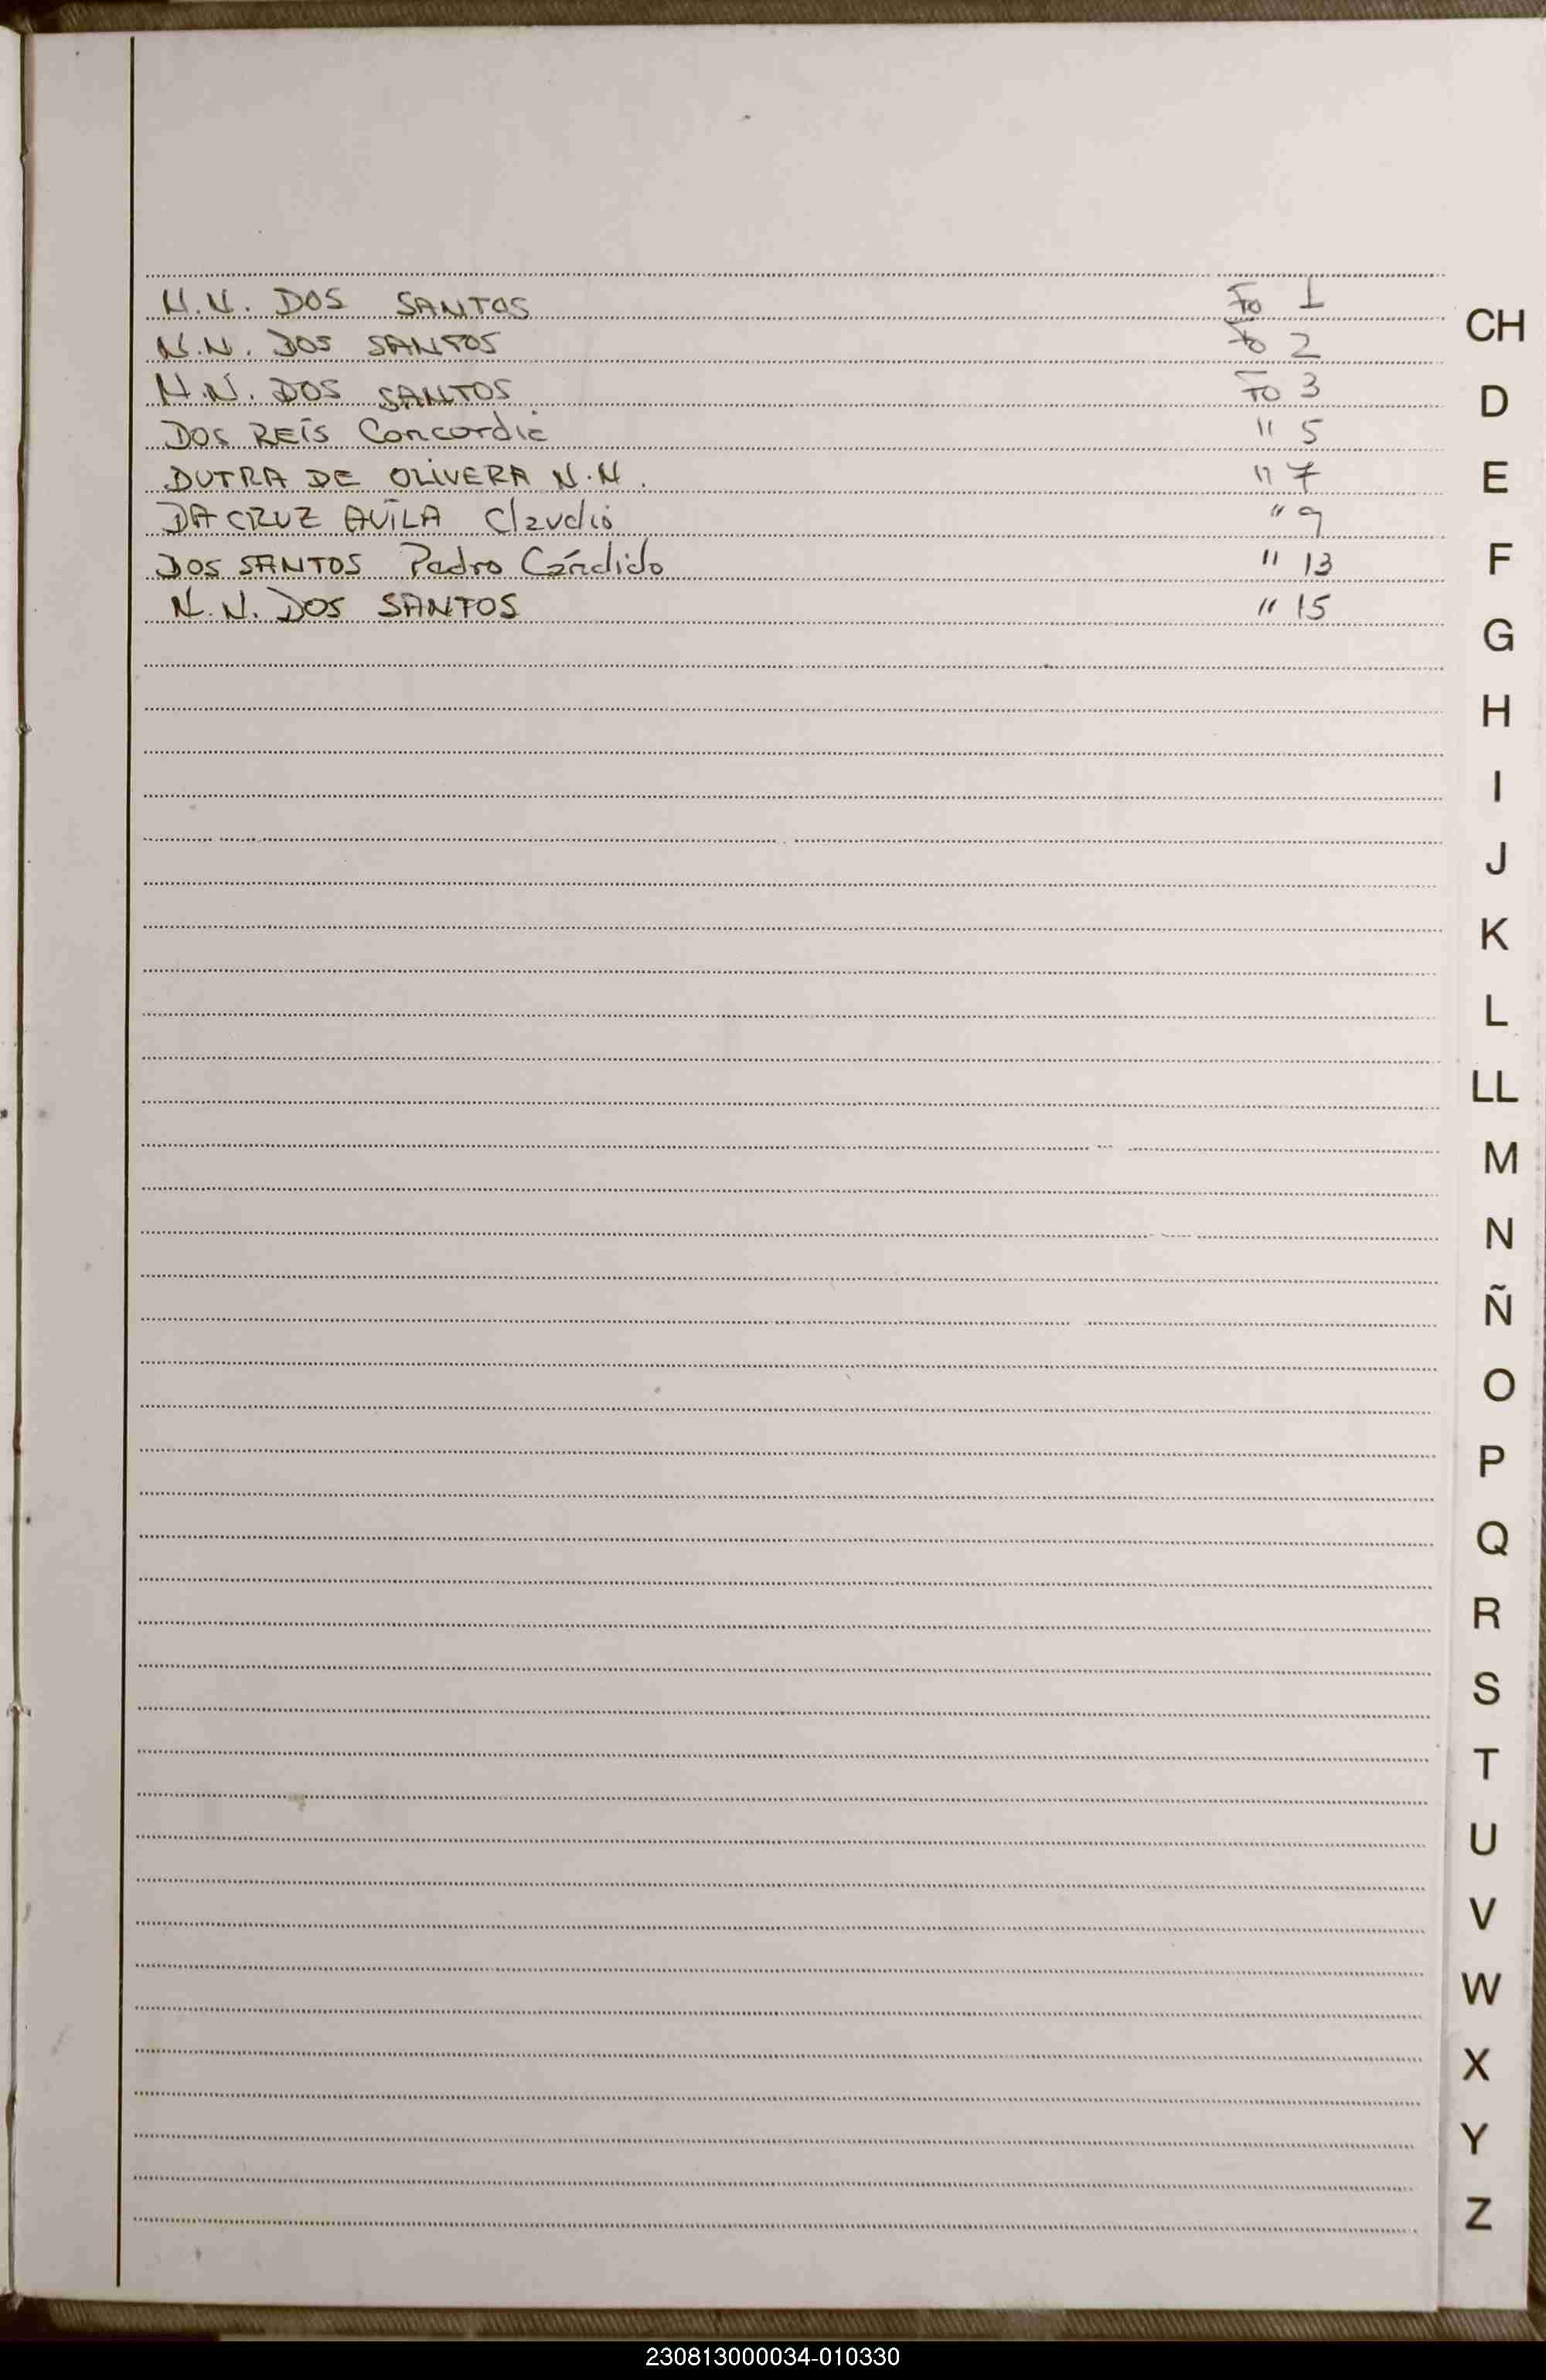 N.N. DOS SANTOS Fo 1
N.N. DOS SANTOS Fo 2
N.N. DOS SANTOS Fo 3
DOS REIS Concordia " 5
DUTRA DE OLIVERA N.N. " 7
DA CRUZ AVILA Claudio " 9
DOS SANTOS Pedro Cándido " 13
N.N. DOS SANTOS " 15
CH
D
E
F
G
H
I
J
K
L
LL
M
N
Ñ
O
P
Q
R
S
T
U
V
W
X
Y
Z
230813000034-010330